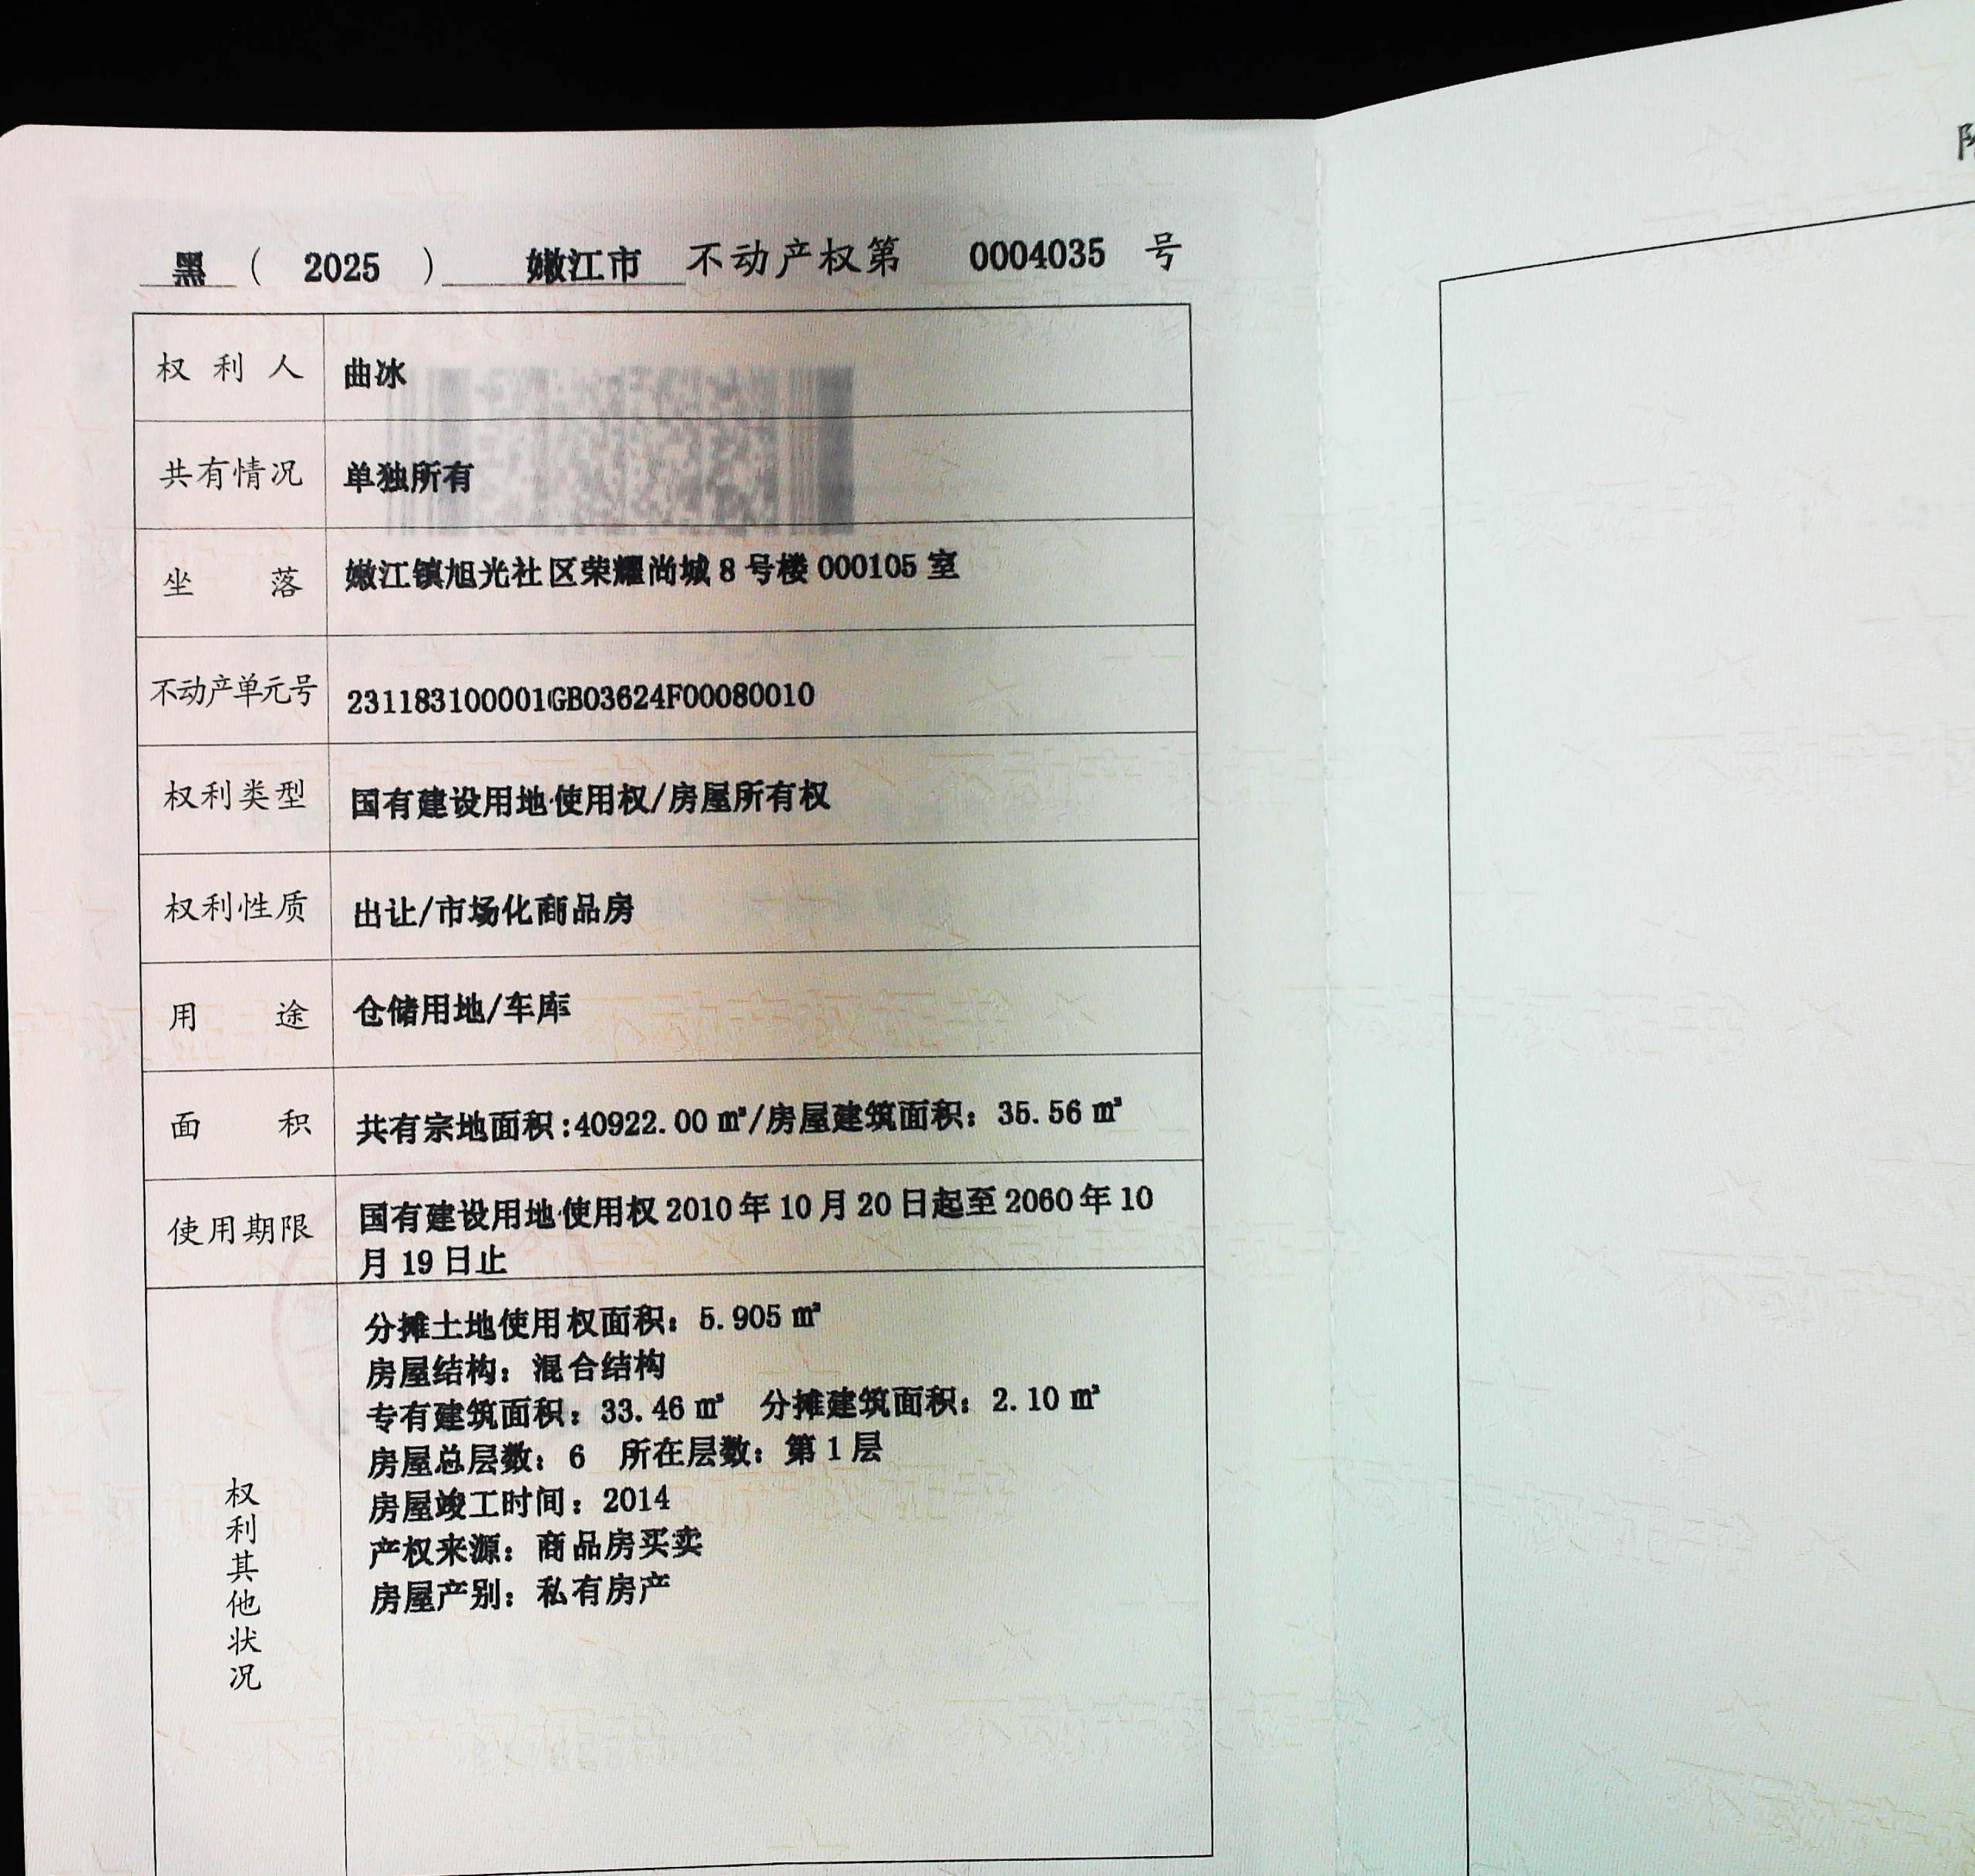 黑 ( 2025 ) 嫩江市 不动产权第 0004035 号
权利人 曲冰
共有情况 单独所有
坐落 嫩江镇旭光社区荣耀尚城 8 号楼 000105 室
不动产单元号 231183100001GB03624F00080010
权利类型 国有建设用地使用权/房屋所有权
权利性质 出让/市场化商品房
用途 仓储用地/车库
面积 共有宗地面积:40922.00 ㎡/房屋建筑面积: 35.56 ㎡
使用期限 国有建设用地使用权 2010 年 10 月 20 日起至 2060 年 10
月 19 日止
权利其他状况
分摊土地使用权面积: 5.905 ㎡
房屋结构: 混合结构
专有建筑面积: 33.46 ㎡ 分摊建筑面积: 2.10 ㎡
房屋总层数: 6 所在层数: 第 1 层
房屋竣工时间: 2014
产权来源: 商品房买卖
房屋产别: 私有房产